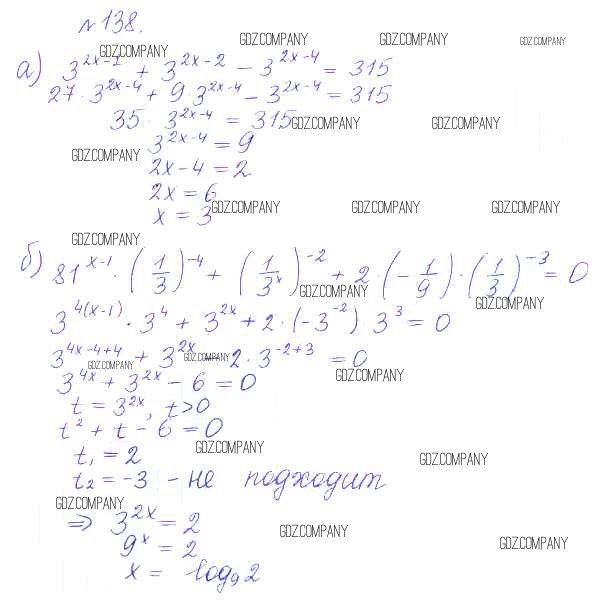 №138.
GDZ.COMPANY GDZ.COMPANY GDZ.COMPANY GDZ.COMPANY
а) 3^{2x-1} + 3^{2x-2} - 3^{2x-4} = 315
27 · 3^{2x-4} + 9 · 3^{2x-4} - 3^{2x-4} = 315
35 · 3^{2x-4} = 315
GDZ.COMPANY GDZ.COMPANY
3^{2x-4} = 9
GDZ.COMPANY
2x - 4 = 2
2x = 6
x = 3
GDZ.COMPANY GDZ.COMPANY GDZ.COMPANY
GDZ.COMPANY
б) 81^{x-1} · (1/3)^{-4} + (1/3^x)^{-2} + 2 · (-1/9) · (1/3)^{-3} = 0
GDZ.COMPANY GDZ.COMPANY
3^{4(x-1)} · 3^4 + 3^{2x} + 2 · (-3^{-2}) 3^3 = 0
3^{4x-4+4} + 3^{2x} - 2 · 3^{-2+3} = 0
GDZ.COMPANY GDZ.COMPANY GDZ.COMPANY
3^{4x} + 3^{2x} - 6 = 0
t = 3^{2x}, t > 0
t^2 + t - 6 = 0
GDZ.COMPANY GDZ.COMPANY
t₁ = 2
t₂ = -3 - не подходит
GDZ.COMPANY
⇒ 3^{2x} = 2
GDZ.COMPANY GDZ.COMPANY
9^x = 2
x = log₉2